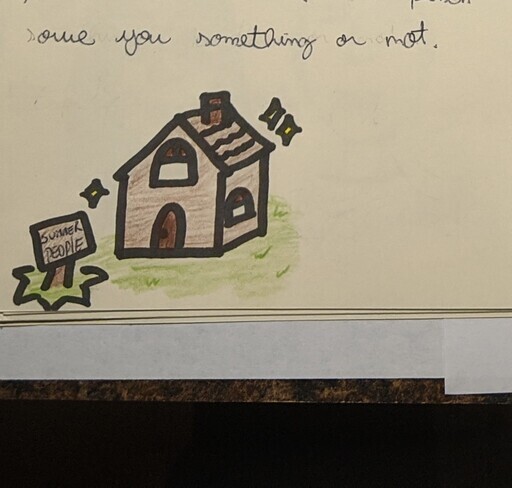 owe you something or not.
SUMMER
PEOPLE